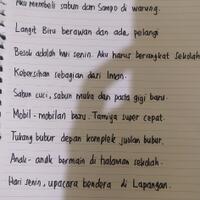 Aku membeli sabun dan sampo di warung.
Langit Biru berawan dan ada pelangi
Besok adalah hari senin. Aku harus berangkat sekolah
Kebersihan sebagian dari Iman.
Sabun cuci, sabun muka dan pasta gigi baru.
Mobil-mobilan baru. Tamiya super cepat.
Tukang bubur depan komplek jualan bubur.
Anak-anak bermain di halaman sekolah.
Hari senin, upacara bendera di Lapangan.